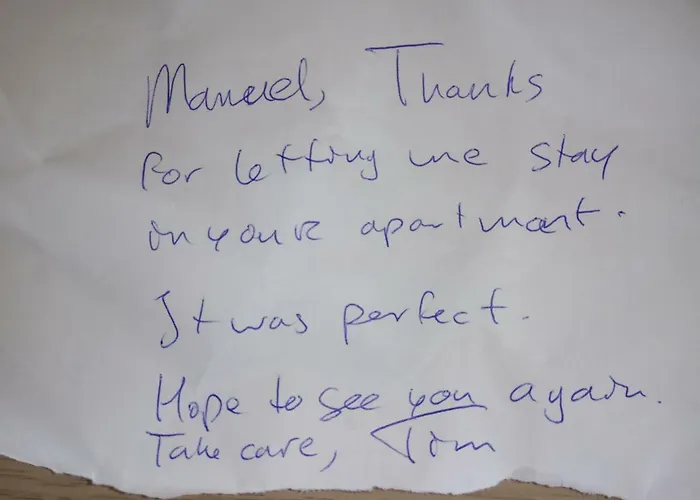 Manuel, Thanks
for letting me stay
in your apartment.
It was perfect.
Hope to see you again.
Take care, Tom